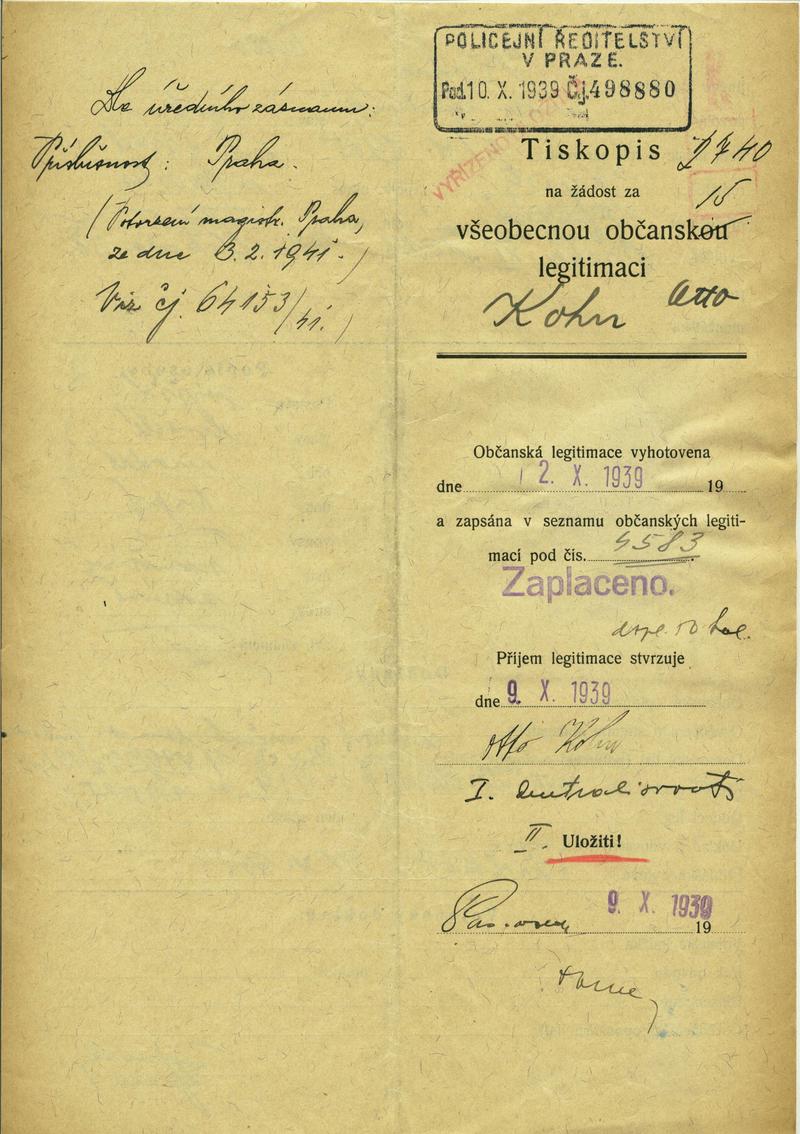 Dle úředního záznamu:
Příslušnost: Praha.
(Potvrzení magistr. Praha,
ze dne 3. 2. 1941.)
Viz čj. 64153/41.)
POLICEJNÍ ŘEDITELSTVÍ
V PRAZE.
Pod. 10. X. 1939 Čj. 498880
VYŘÍZENO
Tiskopis 2740
na žádost za 15
všeobecnou občanskou
legitimaci
Kohn Otto
Občanská legitimace vyhotovena
dne 2. X. 1939 19
a zapsána v seznamu občanských legiti-
mací pod čís. 4583
Zaplaceno.
Příjem legitimace stvrzuje
dne 9. X. 1939
Otto Kohn
I. Centralisovati
II. Uložiti!
9. X. 1939
19